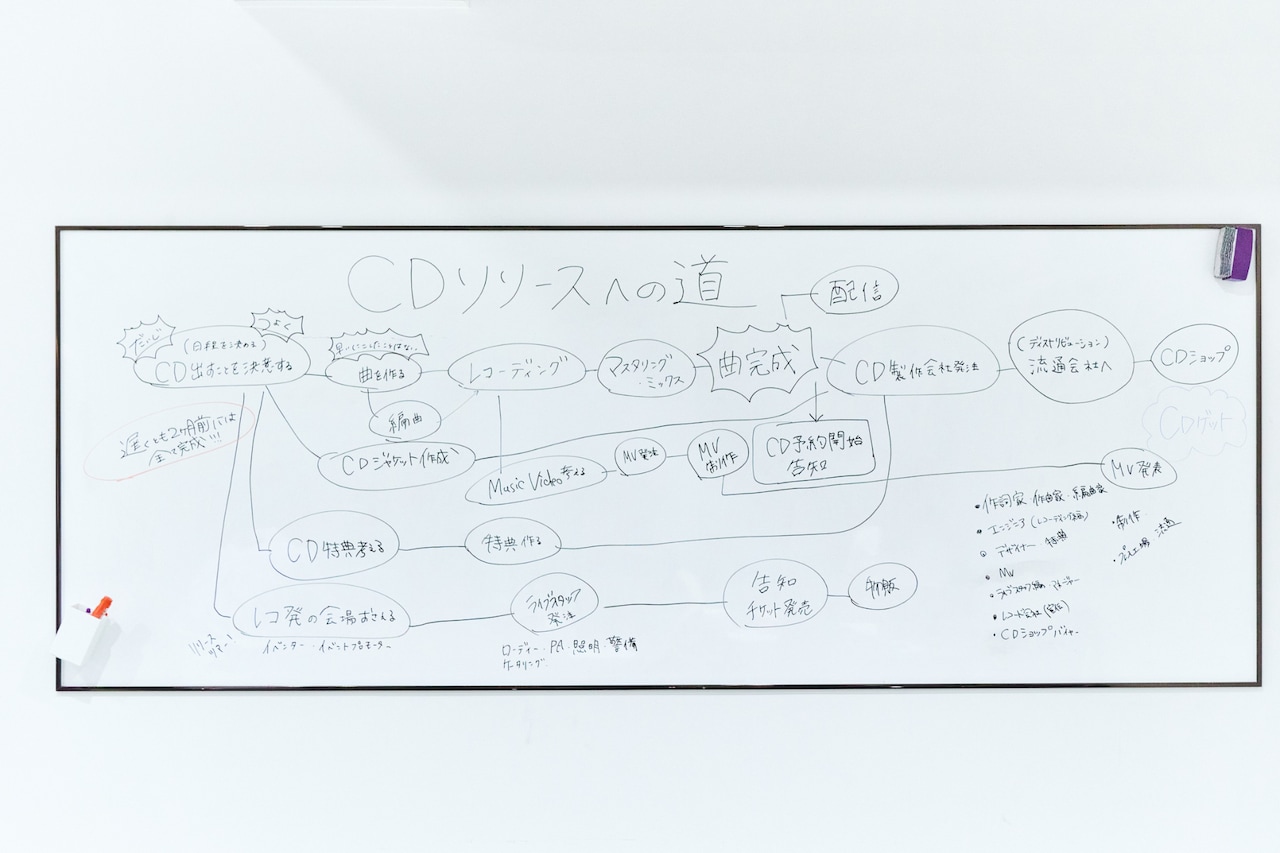 CDリリースへの道
配信
だいじ
つよく
(日程を決める)
CD出すことを決意する
早いにこしたことはない..
曲を作る
編曲
レコーディング
マスタリング
・ミックス
曲完成
CD製作会社発注
(ディストリビューション)
流通会社へ
CDショップ
CDゲット
遅くとも2ヶ月前には
全て完成!!!
CDジャケット作成
Music Video考える
MV発注
MV
制作
CD予約開始
告知
MV発表
CD特典考える
特典作る
レコ発の会場おさえる
リリース
ツアー!
イベンター・イベントプロモーター
ライブスタッフ
発注
ローディー・PA・照明・警備
ケータリング.
告知
チケット発売
物販
・作詞家 作曲家・編曲家
・エンジニア(レコーディング
・デザイナー 
・MV
・ライブスタッフ マネージャー
・レコード会社
・CDショップバイヤー
・制作
・プレス工場 流通